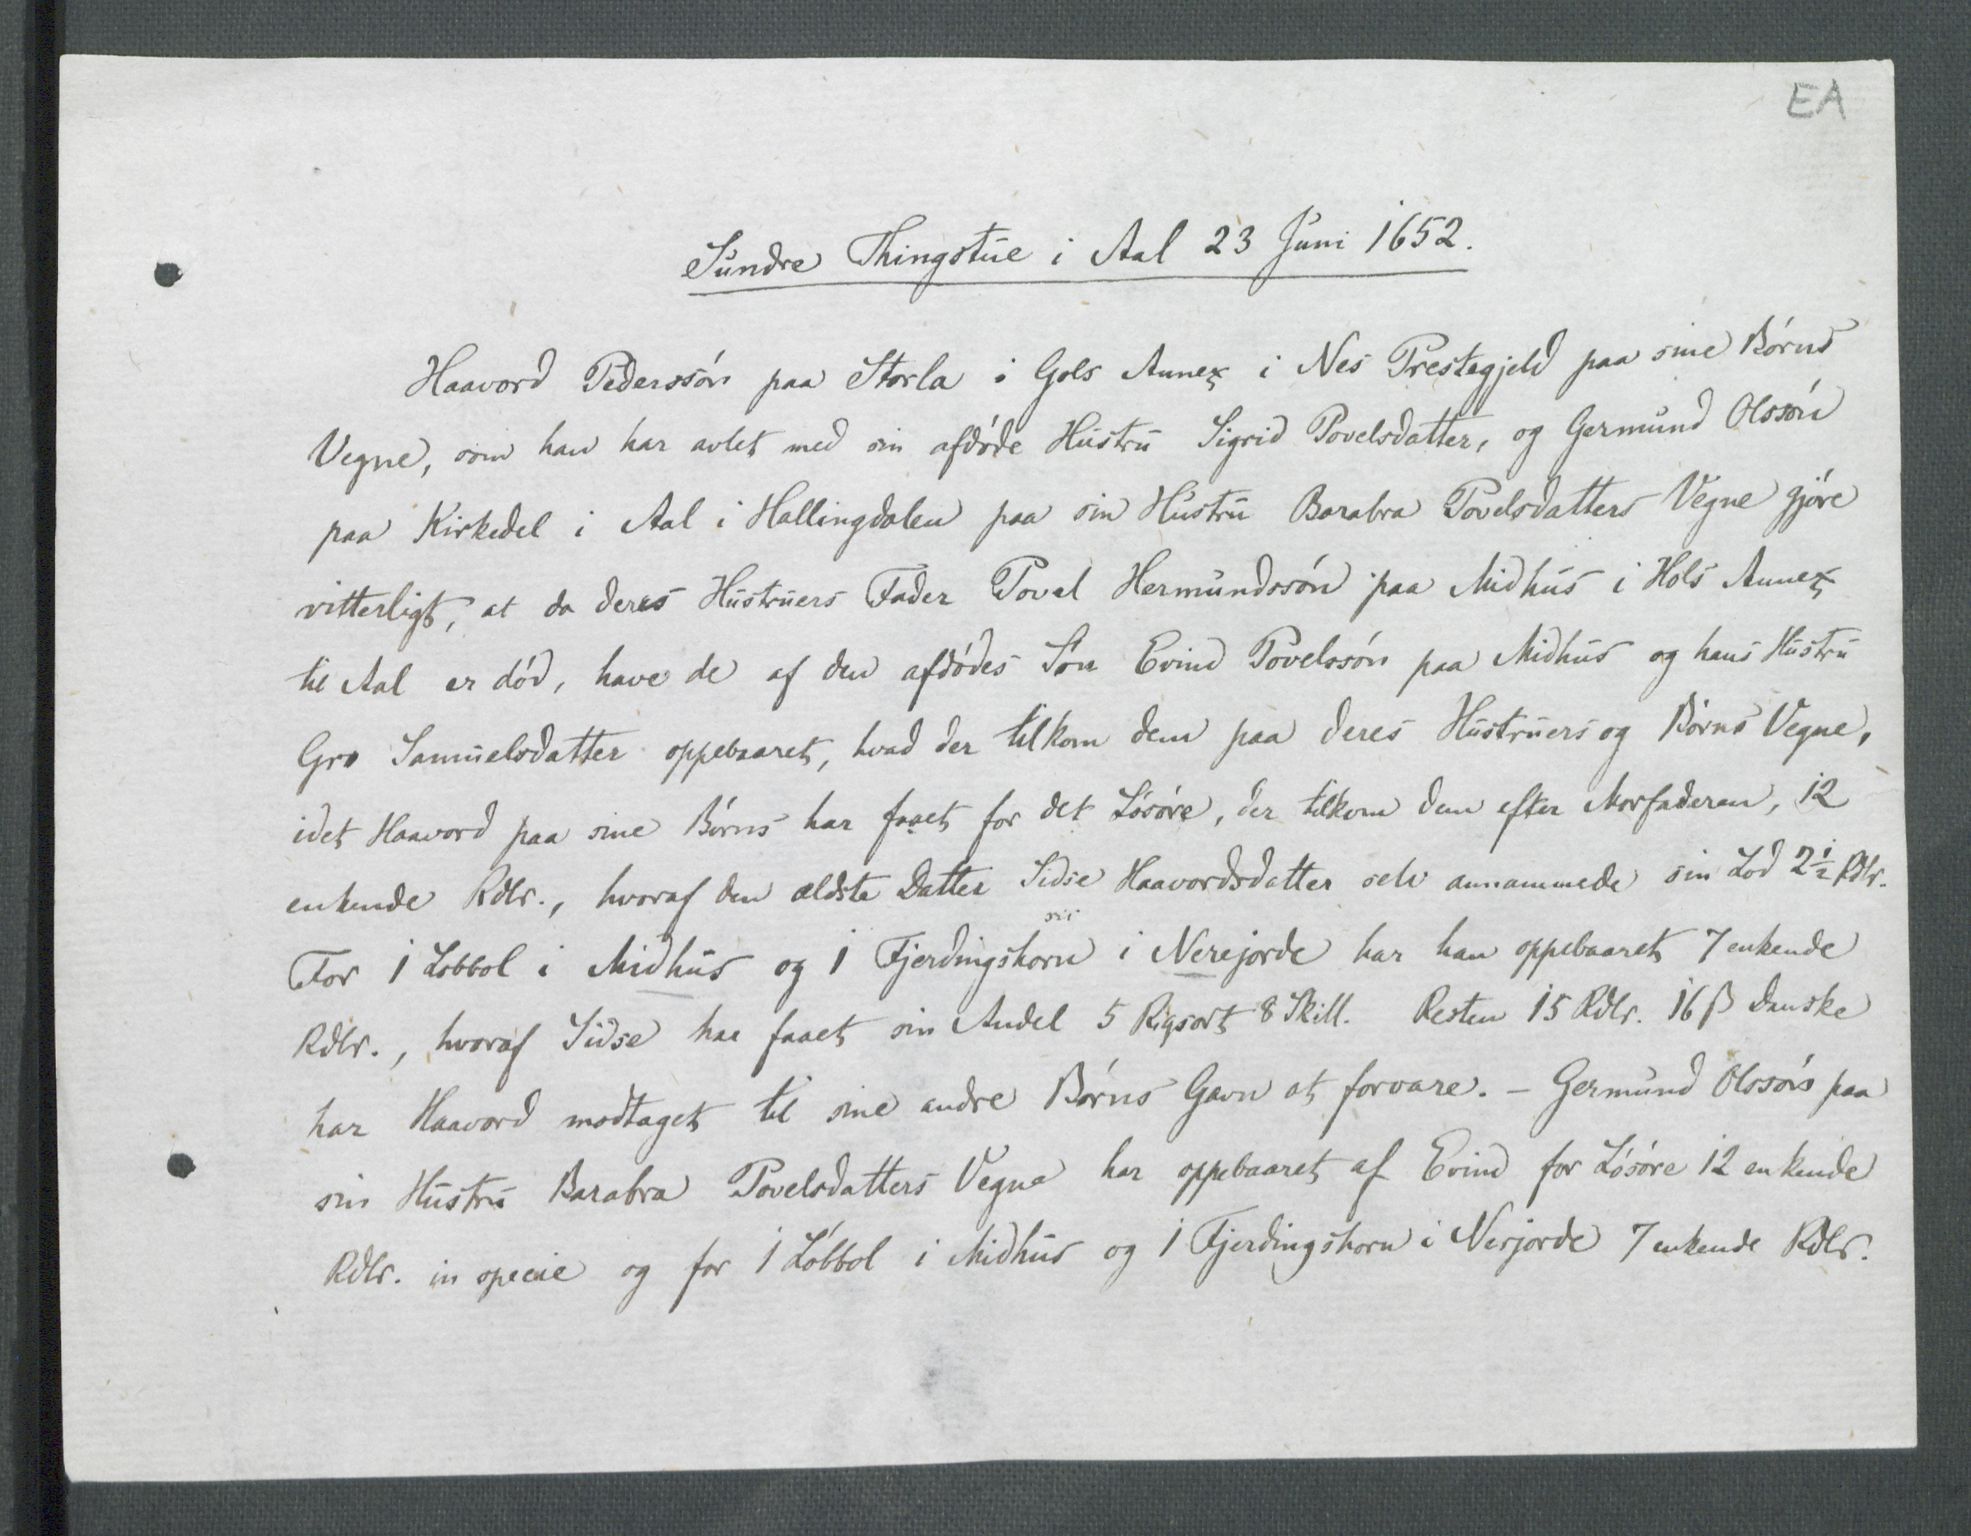 EA
Sundre Thingstue i Aal 23 Juni 1652.
Haavord Pederssón paa Storla i Gols Annex i Nes Prestegjeld paa sine Börns
Vegne, som han har avlet med sin afdöde Hustru Sigrid Povelsdatter, og Germund Olssón
paa Kirkedel i Aal i Hallingdalen paa sin Hustru Barabra Povelsdatters Vegne gjöre
vitterligt, at da deres Hustruers Fader Povel Hermundssón paa Midhus i Hols Annex
til Aal er död, have de af den afdödes Sön Evind Povelssón paa Midhus og hans Hustru
Gro Samuelsdatter oppebaaret, hvad der tilkom dem paa deres Hustruers og Börns Vegne,
idet Haavord paa sine Börns har faaet for det Lösöre, der tilkom dem efter Morfaderen, 12
enkende Rdlr., hvoraf den ældste Datter Sidse Haavordsdatter selv annammede sin Lod 2½ Rdlr.
For 1 Löbbol i Midhus og 1 Fjerdingskorn i Nerejorde sic har han oppebaaret 7 enkende
Rdlr., hvoraf Sidse har faaet sin Andel 5 Rigsort 8 Skill. Resten 15 Rdlr. 16 β Danske
har Haavord modtaget til sine andre Börns Gavn at forvare. – Germund Olssón paa
sin Hustrus Barabra Povelsdatters Vegne har oppebaaret af Evind for Lösöre 12 enkende
Rdlr. in specie og for 1 Löbbol i Midhus og 1 Fjerdingskorn i Nerjorde 7 enkende Rdlr.